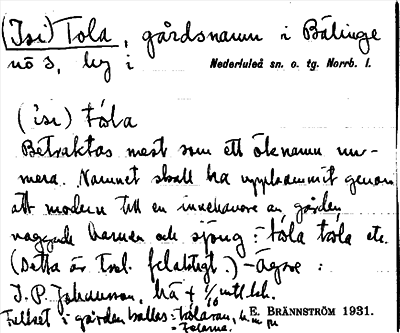 (Isi) Tola, gårdsnamn i Bälinge
nö 3, by i Nederluleå sn. o. tg. Norrb. l.
(isi) tóla
Betraktas mest som ett öknamn nu-
mera. Namnet skall ha uppkommit genom
att modern till en innehavare av gården
vaggade barnen och sjöng: tóla tóla etc.
(Detta är trol. felaktigt.) - Ägare:
J. P. Johansson, hä + 1/16 mtl
Folket i gården kallas: Tolaran,
- Tolarna.
E. BRÄNNSTRÖM 1931.